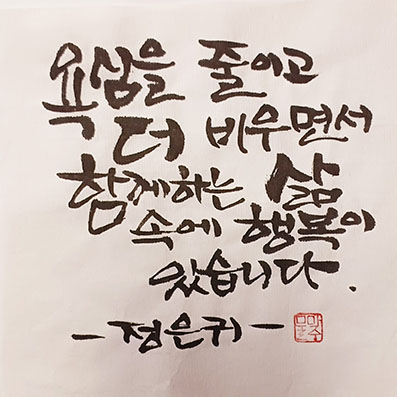 욕심을 줄이고
더 비우면서
함께하는 삶
속에 행복이
있습니다.
- 정은귀 -